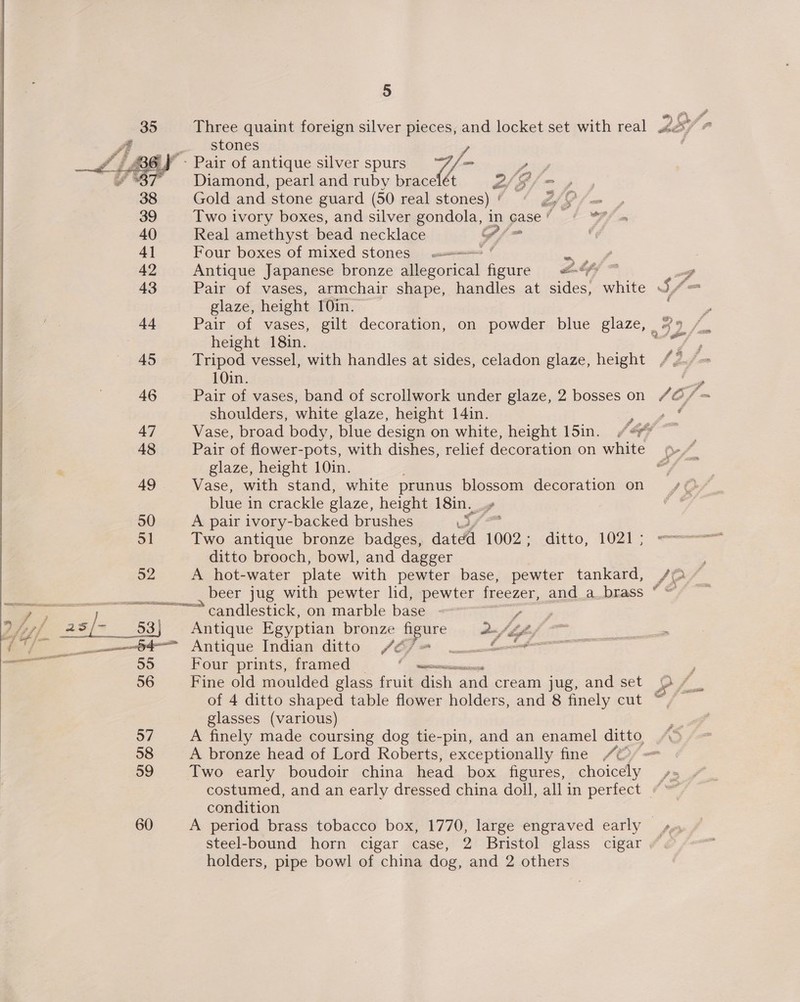 5
35 Three quaint foreign silver pieces, and locket set with real 25/-
stones
36 Pair of antique silver spurs 7/-
37 Diamond, pearl and ruby bracelét 2/9/-
38 Gold and stone guard (50 real stones)
39 Two ivory boxes, and silver gondola, in case
40 Real amethyst bead necklace
41 Four boxes of mixed stones
42 Antique Japanese bronze allegorical figure
43 Pair of vases, armchair shape, handles at sides, white
glaze, height 10in.
44 Pair of vases, gilt decoration, on powder blue glaze,
height 18in.
45 Tripod vessel, with handles at sides, celadon glaze, height
10in.
46 Pair of vases, band of scrollwork under glaze, 2 bosses on
shoulders, white glaze, height 14in.
47 Vase, broad body, blue design on white, height 15in.
48 Pair of flower-pots, with dishes, relief decoration on white
glaze, height 10in.
49 Vase, with stand, white prunus blossom decoration on
blue in crackle glaze, height 18in.
50 A pair ivory-backed brushes
51 Two antique bronze badges, dated 1002; ditto, 1021;
ditto brooch, bowl, and dagger
52 A hot-water plate with pewter base, pewter tankard,
beer jug with pewter lid, pewter freezer, and a brass
candlestick, on marble base
25/- 53) Antique Egyptian bronze figure
54 Antique Indian ditto
55 Four prints, framed
56 Fine old moulded glass fruit dish and cream jug, and set
of 4 ditto shaped table flower holders, and 8 finely cut
glasses (various)
57 A finely made coursing dog tie-pin, and an enamel ditto
58 A bronze head of Lord Roberts, exceptionally fine
59 Two early boudoir china head box figures, choicely
costumed, and an early dressed china doll, all in perfect
condition
60 A period brass tobacco box, 1770, large engraved early
steel-bound horn cigar case, 2 Bristol glass cigar
holders, pipe bowl of china dog, and 2 others